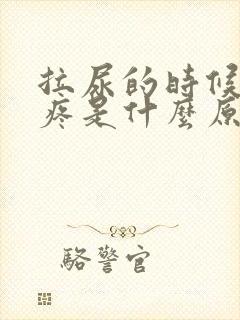 拉尿的時候
疼是什麼原
駱警官